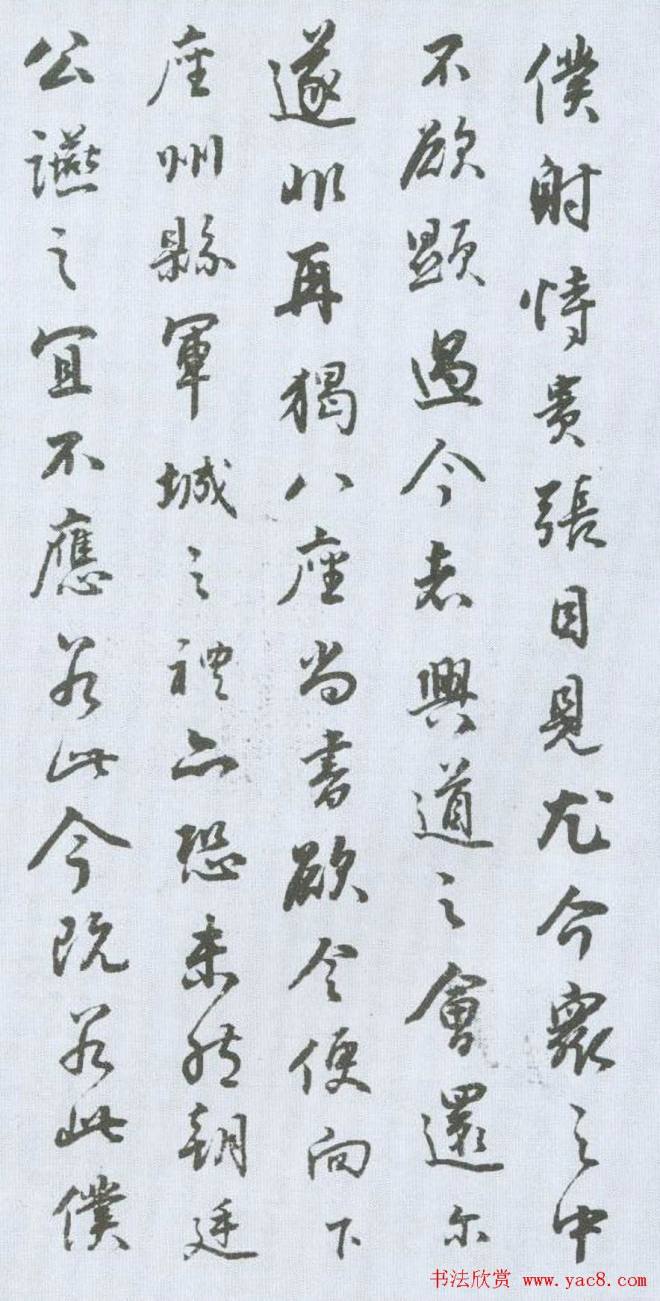 僕射恃貴張目見尤今衆之中
不欲顯過今者興道之會還尔
遂非再猲八座尚書欲令便向下
座州縣軍城之禮亦恐未然朝廷
公讌之宜不應若此今既若此僕
书法欣赏 www.yac8.com